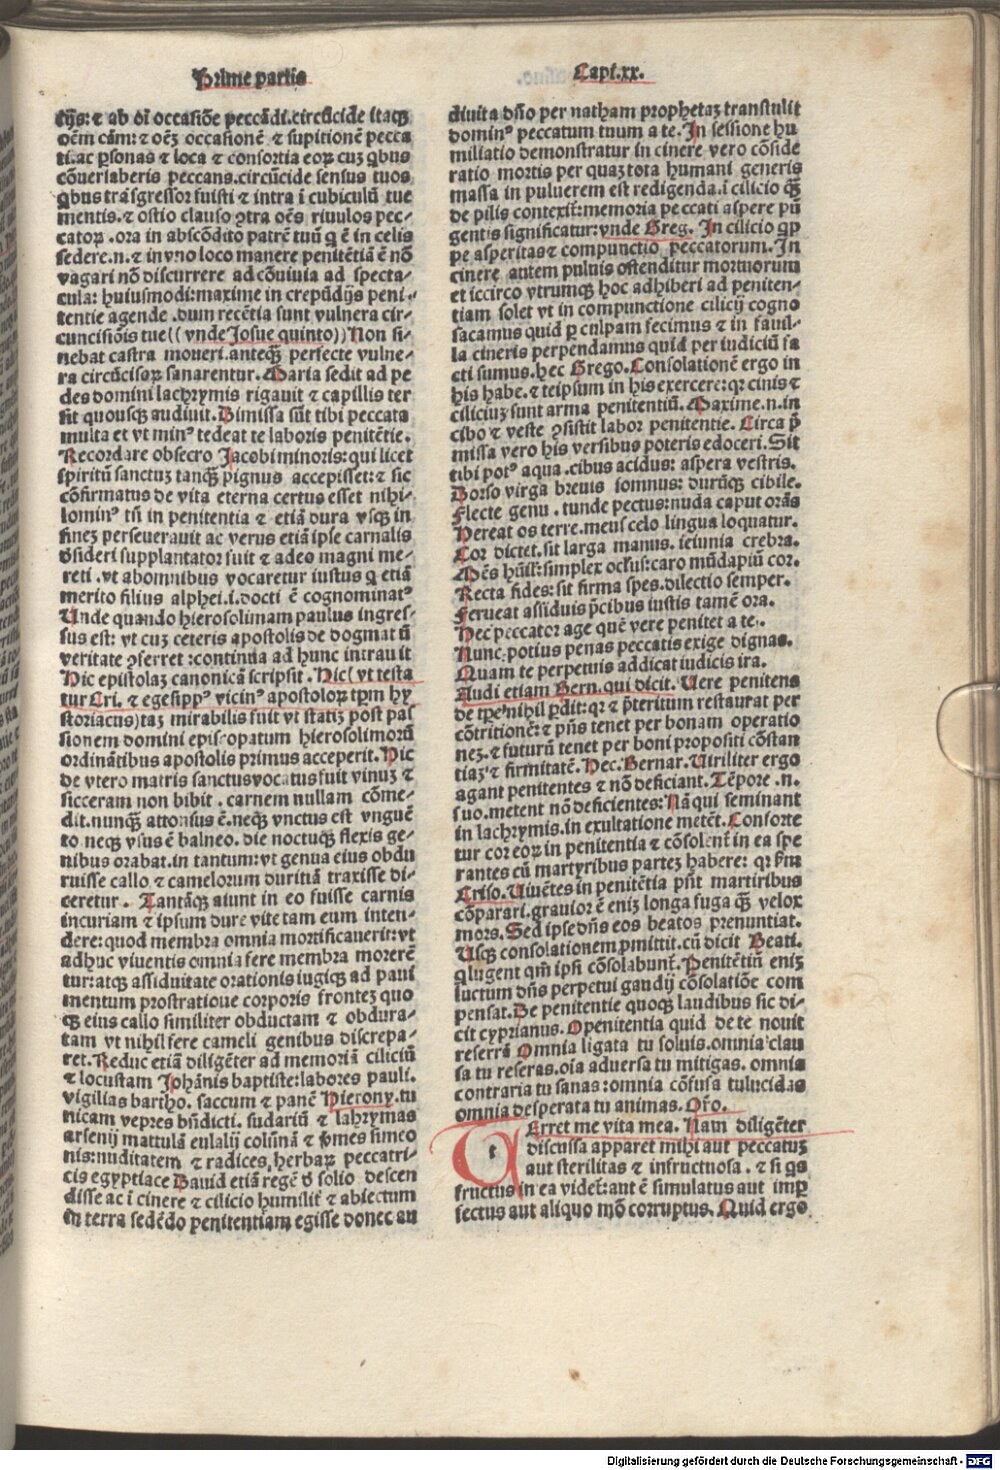 Prime partis
Capi.xx.
tijs: ⁊ ab oī occasiōe peccādi.circūcide itaqꝫ
oēm cām: ⁊ oēꝫ occasionē ⁊ supitionē pecca
ti.ac ꝑsonas ⁊ loca ⁊ consortia eoꝝ cuꝫ qbus
cōuerlaberis peccans.circūcide sensus tuos
qbus trāsgressor fuisti ⁊ intra ī cubiculū tue
mentis.⁊ ostio clauso ꝯtra oēs riuulos pec-
catoꝝ .ora in abscōdito patrē tuū q ē in celis
sedere.n.⁊ in vno loco manere penitētiā ē nō
vagari nō discurrere ad cōuiuia ad specta-
cula: huiusmodi:maxime in crepūdijs peni-
tentie agende .dum recētia sunt vulnera cir-
cuncisiōis tue((vnde Josue quinto))Non si-
nebat castra moueri.anteqꝫ perfecte vulne-
ra circūcisoꝝ sanarentur. Maria sedit ad pe
des domini lachrymis rigauit ⁊ capillis ter
sit quousqꝫ audiuit.Dimissa sūt tibi peccata
multa et vt minꝰ tedeat te laboris penitētie.
Recordare obsecro Jacobi minoris:qui licet
spiritū sanctuꝫ tanqꝫ pignus accepisset:⁊ sic
cōfirmatus de vita eterna certus esset nihi-
lominꝰ tn̄ in penitentia ⁊ etiā dura vsqꝫ in
fineꝫ perseuerauit ac verus etiā ipse carnalis
ōsideri supplantator fuit ⁊ adeo magni me-
reti .vt abomnibus vocaretur iustus q etiā
merito filius alphei.i.docti ē cognominatꝰ
Unde quando hierosolimam paulus ingres-
sus est: vt cuꝫ ceteris apostolis de dogmatū
veritate ꝯferret :continua ad hunc intrauit
Hic epistolaꝫ canonicā scripsit .Hic(vt testa
tur Cri. ⁊ egesippꝰ vicinꝰ apostoloꝝ tꝑm hy
storiacus)taꝫ mirabilis fuit vt statiꝫ post pas
sionem domini episcopatum hierosolimorū
ordināntibus apostolis primus acceperit.Hic
de vtero matris sanctus vocatus fuit vinuꝫ ⁊
sicceram non bibit . carnem nullam cōme-
dit.nunqꝫ attonsus ē.neqꝫ vnctus est vnguē
to neqꝫ vsus ē balneo. die noctuqꝫ flexis ge-
nibus orabat.in tantum:vt genua eius obdu
ruisse callo ⁊ camelorum duritiā traxisse di-
ceretur . Tantāqꝫ aiunt in eo fuisse carnis
incuriam ⁊ ipsum dure vite tam eum inten-
dere:quod membra omnia mortificauerit:vt
adhuc viuentis omnia fere membra morerē
tur:atqꝫ assiduitate orationis iugiqꝫ ad paui
mentum prostratioue corporis fronteꝫ quo
qꝫ eius callo similiter obductam ⁊ obdura-
tam vt nihil fere cameli genibus discrepa-
ret.Reduc etiā diligēter ad memoriā ciliciū
⁊ locustam Johānis baptiste:labores pauli.
vigilias bartho. saccum ⁊ panē Hierony.tu
nicam vepres bn̄dicti. sudariū ⁊ lahrymas
arsenij mattulā eulalij colūnā ⁊ fomes simeo
nis:nuditatem ⁊ radices,herbaꝝ peccatri-
cis egyptiace Dauid etiā regē ō solio descen
disse ac ī cinere ⁊ cilicio humilit̄ ⁊ abiectum
in terra sedēdo penitentiam egisse donec au
diuita dn̄o per natham prophetaꝫ transtulit
dominꝰ peccatum tuum a te.In sessione hu
miliatio demonstratur in cinere vero cōside
ratio mortis per quaꝫ tota humani generis
massa in puluerem est redigenda.ī cilicio qꝫ
de pilis contexit̄:memoria peccati aspere pū
gentis significatur:vnde Greg. In cilicio qꝑ
pe asperitas ⁊ compunctio peccatorum.In
cinere autem puluis ostenditur mortuorum
et iccirco vtrumqꝫ hoc adhiberi ad peniten-
tiam solet vt in compunctione cilicij cogno
sacamus quid ꝑ culpam fecimus ⁊ in fauil-
la cineris perpendamus quid per iudiciū fa
cti sumus.hec Grego.Consolationē ergo in
his habe.⁊ teipsum in his exercere:qꝛ cinis ⁊
ciliciuꝫ sunt arma penitentiū.Maxime.n.in
cibo ⁊ veste ꝯsistit labor penitentie. Circa p̄
missa vero his versibus poteris edoceri.Sit
tibi potꝰ aqua .cibus acidus: aspera vestris.
Dorso virga breuis somnus: durūqꝫ cibile.
Flecte genu . tunde pectus:nuda caput orās
Hereat os terre.meus celo lingua loquatur.
Cor dictet.sit larga manus. ieiunia crebra.
Mēs hūil̄:simplex ocl̓us:caro mūdapiū cor.
Recta fides: sit firma spes.dilectio semper.
Ferueat assiduis p̄cibus iustis tamē ora.
Hec peccator age quē vere penitet a te.
Nunc potius penas peccatis exige dignas.
Quam te perpetuis addicat iudicis ira.
Audi etiam Bern. qui dicit. Uere penitens
de tꝑe nihil ꝑdit:qꝛ ⁊ p̄teritum restaurat per
cōtritionē:⁊ pn̄s tenet per bonam operatio
neꝫ.⁊ futurū tenet per boni propositi cōstan
tiaꝫ ⁊ firmitatē. Hec.Bernar. Uiriliter ergo
agant penitentes ⁊ nō deficiant. Tēpore .n.
suo.metent nō deficientes:Nā qui seminant
in lachrymis.in exultatione metēt.Consorte
tur cor eoꝝ in penitentia ⁊ cōsolent̄ in ea spe
rantes cū martyribus parteꝫ habere: qꝛ ẜm
Criso.Uiuētes in penitētia pn̄t martiribus
cōparari.grauior ē eniꝫ longa fuga qꝫ velox
mors.Sed ipse dn̄s eos beatos prenuntiat.
Usqꝫ consolationem ꝓmittit.cū dicit Beati.
q lugent qm̄ ipsi cōsolabunt̄.Penitētiū eniꝫ
luctum dn̄s perpetui gaudij cōsolatiōe com
pensat.De penitentie quoqꝫ laudibus sic di-
cit cyprianus.O penitentia quid de te noui
referrā Omnia ligata tu soluis.omnia clau
sa tu reseras.oīa aduersa tu mitigas. omnia
contraria tu sanas:omnia cōfusa tulucidas
omnia desperata tu animas. Or̄o.
t
Erret me vita mea. Nam diligēter
discussa apparet mihi aut peccatuꝫ
aut sterilitas ⁊ infructuosa .⁊ si qs
fructus in ea videt̄:aut ē simulatus aut imꝑ
fectus aut aliquo mō corruptus. Quid ergo
Digitalisierung gefördert durch die Deutsche Forschungsgemeinschaft - DFG